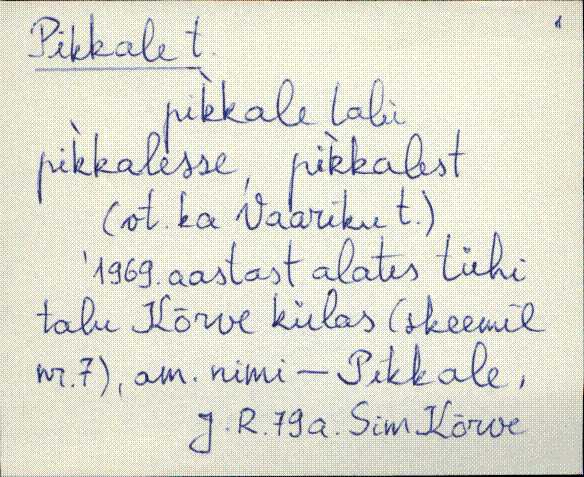 Pikkale t.
pìkkale talu
pìkkalesse, pìkkalest
(vt. ka Vaariku t.)
1969. aastast alates tühi
talu Kõrve külas (skeemil
nr. 7), am. nimi — Pikkale,
J. R. 79a. Sim Kõrve